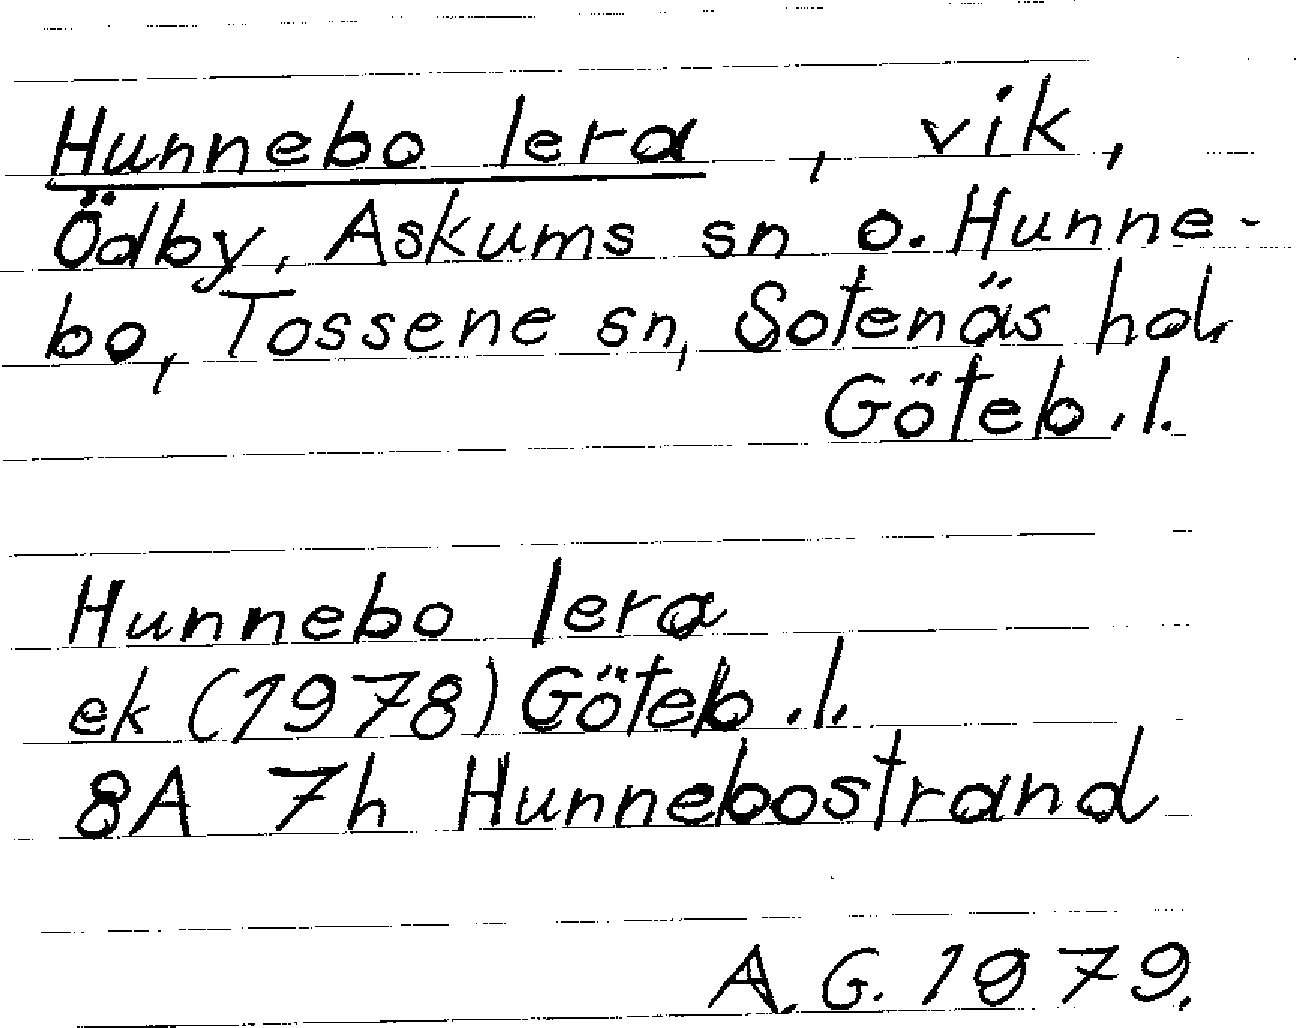 Hunnebo lera, vik,
Ödby, Askums sn o. Hunne-
bo, Tossene sn, Sotenäs hd.
Göteb. l.
Hunnebo lera
ek (1978) Göteb. l.
8A 7h Hunnebostrand
A. G. 1979.